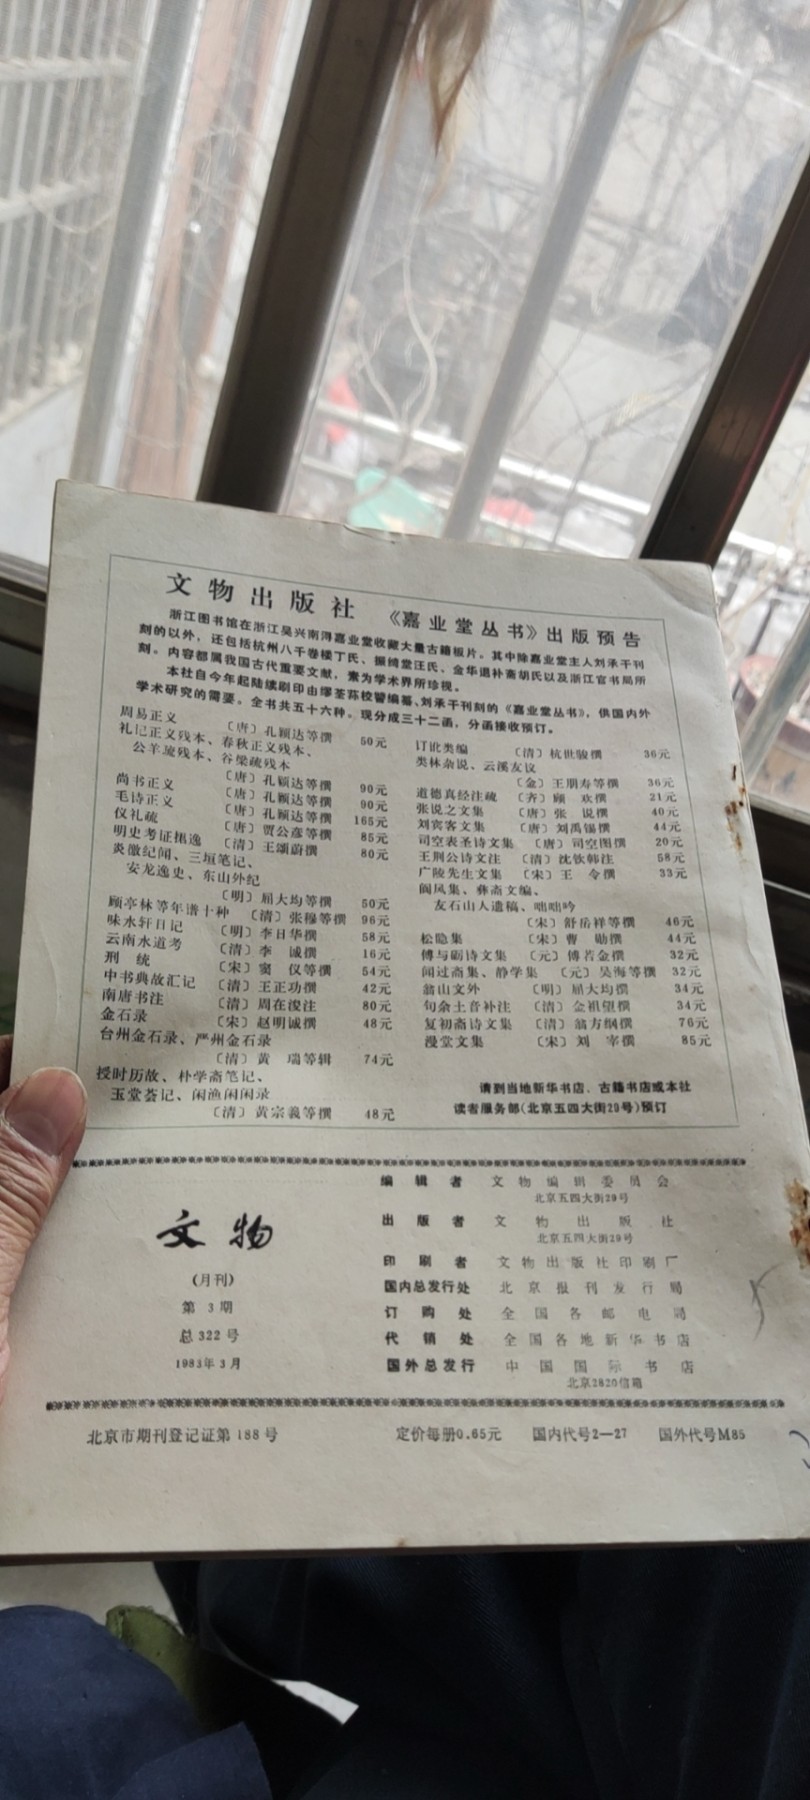 文物出版社 《嘉业堂丛书》出版预告
浙江图书馆在浙江吴兴南浔嘉业堂收藏大量古籍板片。其中除嘉业堂主人刘承干刊
刻的以外，还包括杭州八千卷楼丁氏、振绮堂汪氏、金华退补斋胡氏以及浙江官书局所
刻。内容都属我国古代重要文献，素为学术界所珍视。
本社自今年起陆续刷印由缪荃荪校警编纂、刘承干刊刻的《嘉业堂丛书》，供国内外
学术研究的需要。全书共五十六种。现分成三十二函，分函接收预订。
周易正义 〔唐〕孔颖达等撰 50元
礼记正义残本、春秋正义残本、
公羊疏残本、谷梁疏残本
〔唐〕孔颖达等撰 90元
尚书正义 〔唐〕孔颖达等撰 90元
毛诗正义 〔唐〕孔颖达等撰 165元
仪礼疏 〔唐〕贾公彦等撰 85元
明史考证捃逸 〔清〕王颂蔚撰 80元
炎徼纪闻、三垣笔记、
安龙逸史、东山外纪
〔明〕屈大均等撰 50元
顾亭林等年谱十种 〔清〕张穆等撰 96元
味水轩日记 〔明〕李日华撰 58元
云南水道考 〔清〕李 诚撰 16元
刑 统 〔宋〕窦 仪等撰 54元
中书典故汇记 〔清〕王正功撰 42元
南唐书注 〔清〕周在浚注 80元
金石录 〔宋〕赵明诚撰 48元
台州金石录、严州金石录
〔清〕黄 瑞等辑 74元
授时历故、朴学斋笔记、
玉堂荟记、闲渔闲闲录
〔清〕黄宗羲等撰 48元
订讹类编 〔清〕杭世骏撰 36元
类林杂说、云溪友议
〔金〕王朋寿等撰 36元
道德真经注疏 〔齐〕顾 欢撰 21元
张说之文集 〔唐〕张 说撰 40元
刘宾客文集 〔唐〕刘禹锡撰 44元
司空表圣诗文集 〔唐〕司空图撰 20元
王荆公诗文注 〔清〕沈钦韩注 58元
广陵先生文集 〔宋〕王 令撰 33元
阆风集、彝斋文编、
友石山人遗稿、咄咄吟
〔宋〕舒岳祥等撰 46元
松隐集 〔宋〕曹 勋撰 44元
傅与砺诗文集 〔元〕傅若金撰 32元
闻过斋集、静学集 〔元〕吴海等撰 32元
翁山文外 〔明〕屈大均撰 34元
句余土音补注 〔清〕全祖望撰 34元
复初斋诗文集 〔清〕翁方纲撰 76元
漫堂文集 〔宋〕刘 宰撰 85元
请到当地新华书店、古籍书店或本社
读者服务部（北京五四大街29号）预订
文物
（月刊）
第 3 期
总 322 号
1983年 3 月
编辑者 文物编辑委员会
北京五四大街29号
出版者 文物出版社
北京五四大街29号
印刷者 文物出版社印刷厂
国内总发行处 北京报刊发行局
订购处 全国各邮电局
代销处 全国各地新华书店
国外总发行 中国国际书店
北京2820信箱
北京市期刊登记证第 188 号 定价每册0.65元 国内代号2—27 国外代号M85